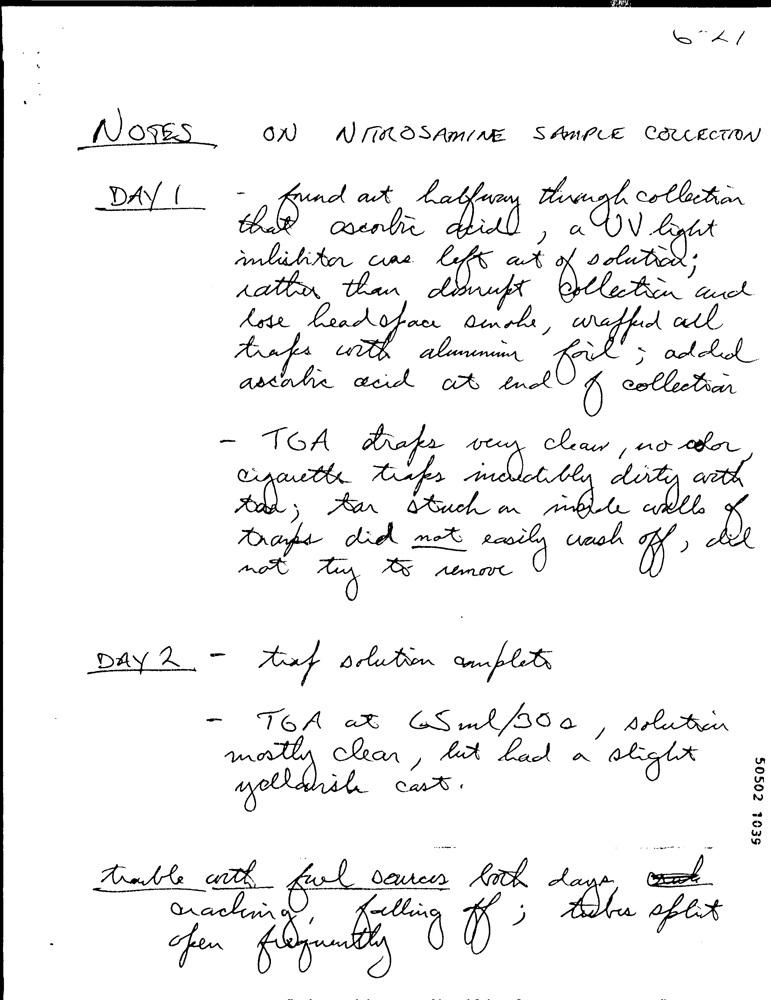 6-21
NOTES ON NITROSAMINE SAMPLE COLLECTION
DAY 1 - found out halfway through collection
that ascorbic acid, a UV light
inhibitor was left out of solution;
rather than disrupt collection and
lose headspace smoke, wrapped all
traps with aluminum foil; added
ascorbic acid at end of collection
- TGA traps very clear, no color,
cigarette traps incredibly dirty with
tar; tar stuck on inside walls of
traps did not easily wash off, did
not try to remove
DAY 2 - trap solution complete
- TGA at 65ml/30s, solution
mostly clear, but had a slight
yellowish cast.
trouble with fuel sources both days,
cracking, falling off; tubes split
open frequently
50502 1039